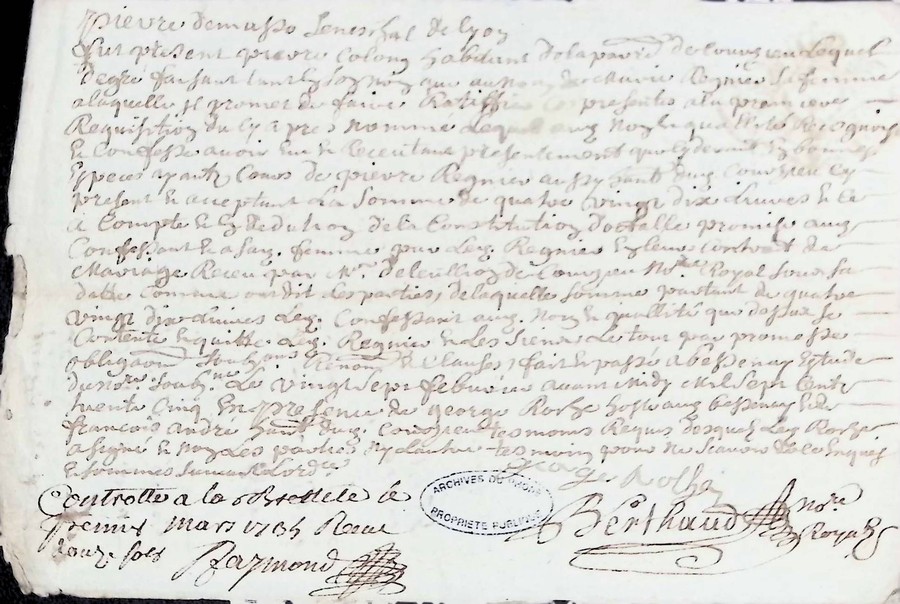 pierre demasso seneschal de lyon
fut present pierre colong habitant de la parr.e de courzieu lequel
degre faisant tant en son nom que au nom de marie Regnier sa femme
a laquelle il promet de faire Ratiffier ces presentes a la premiere
Requisition du cy apres nommé lequel aux noms et qualités Recognois
et Confesse avoir eu et Receu tant presentement que cy devant en bonnes
Especes ayant Cours de pierre Regnier aussy hant dud Courzieu cy
present et acceptant La Somme de quatre vingt dix livres et Ce
a Compte et en deduction de la Constitution dostelle promise aud
Confessant et a sad. femme par led. Regnier en leur Contract de
Mariage Receu par Mre deleullion de Courzieu Nore Royal sous sa
datte Comme ont dit les parties, de laquelle somme partant de quatre
vingt dix livres led. Confessant aud. Nom et quallitté que dessus se
Contente et quitte led. Regnier et Les Siens Le tout par promesse
obligaon soubzons Renons et Clauses, fait et passé a bessenay Estude
du nore soubne Le vingt Sept febvrier avant Midy Mil Sept Cents
trente Cinq En presence de george Roche hoste aud bessenay et de
francois andre hant dud. Courzieu tesmoins Requis desquels led. Roche
a signé et non les parties ny lautre tesmoin pour ne scavoir de ce Enquis
et sommés suivant Lordce
George Roche
Controllé a la Bresle le
premier Mars 1735 Receu
douze sols
Raymond
Berthaud nore Royal
ARCHIVES DU RHONE
PROPRIETE PUBLIQUE